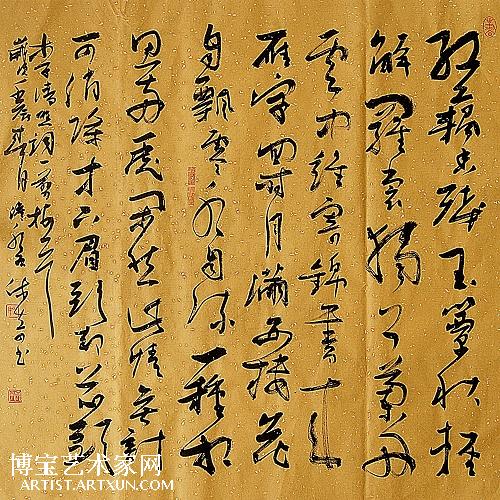 紅藕香殘玉簟秋輕
解羅裳獨上蘭舟
雲中誰寄錦書来
雁字回時月滿西樓花
自飄零水自流一種相
思兩處闲愁此情無計
可消除才下眉頭却上心頭
李清照詞一剪梅
博宝艺术家网
ARTIST.ARTXUN.COM